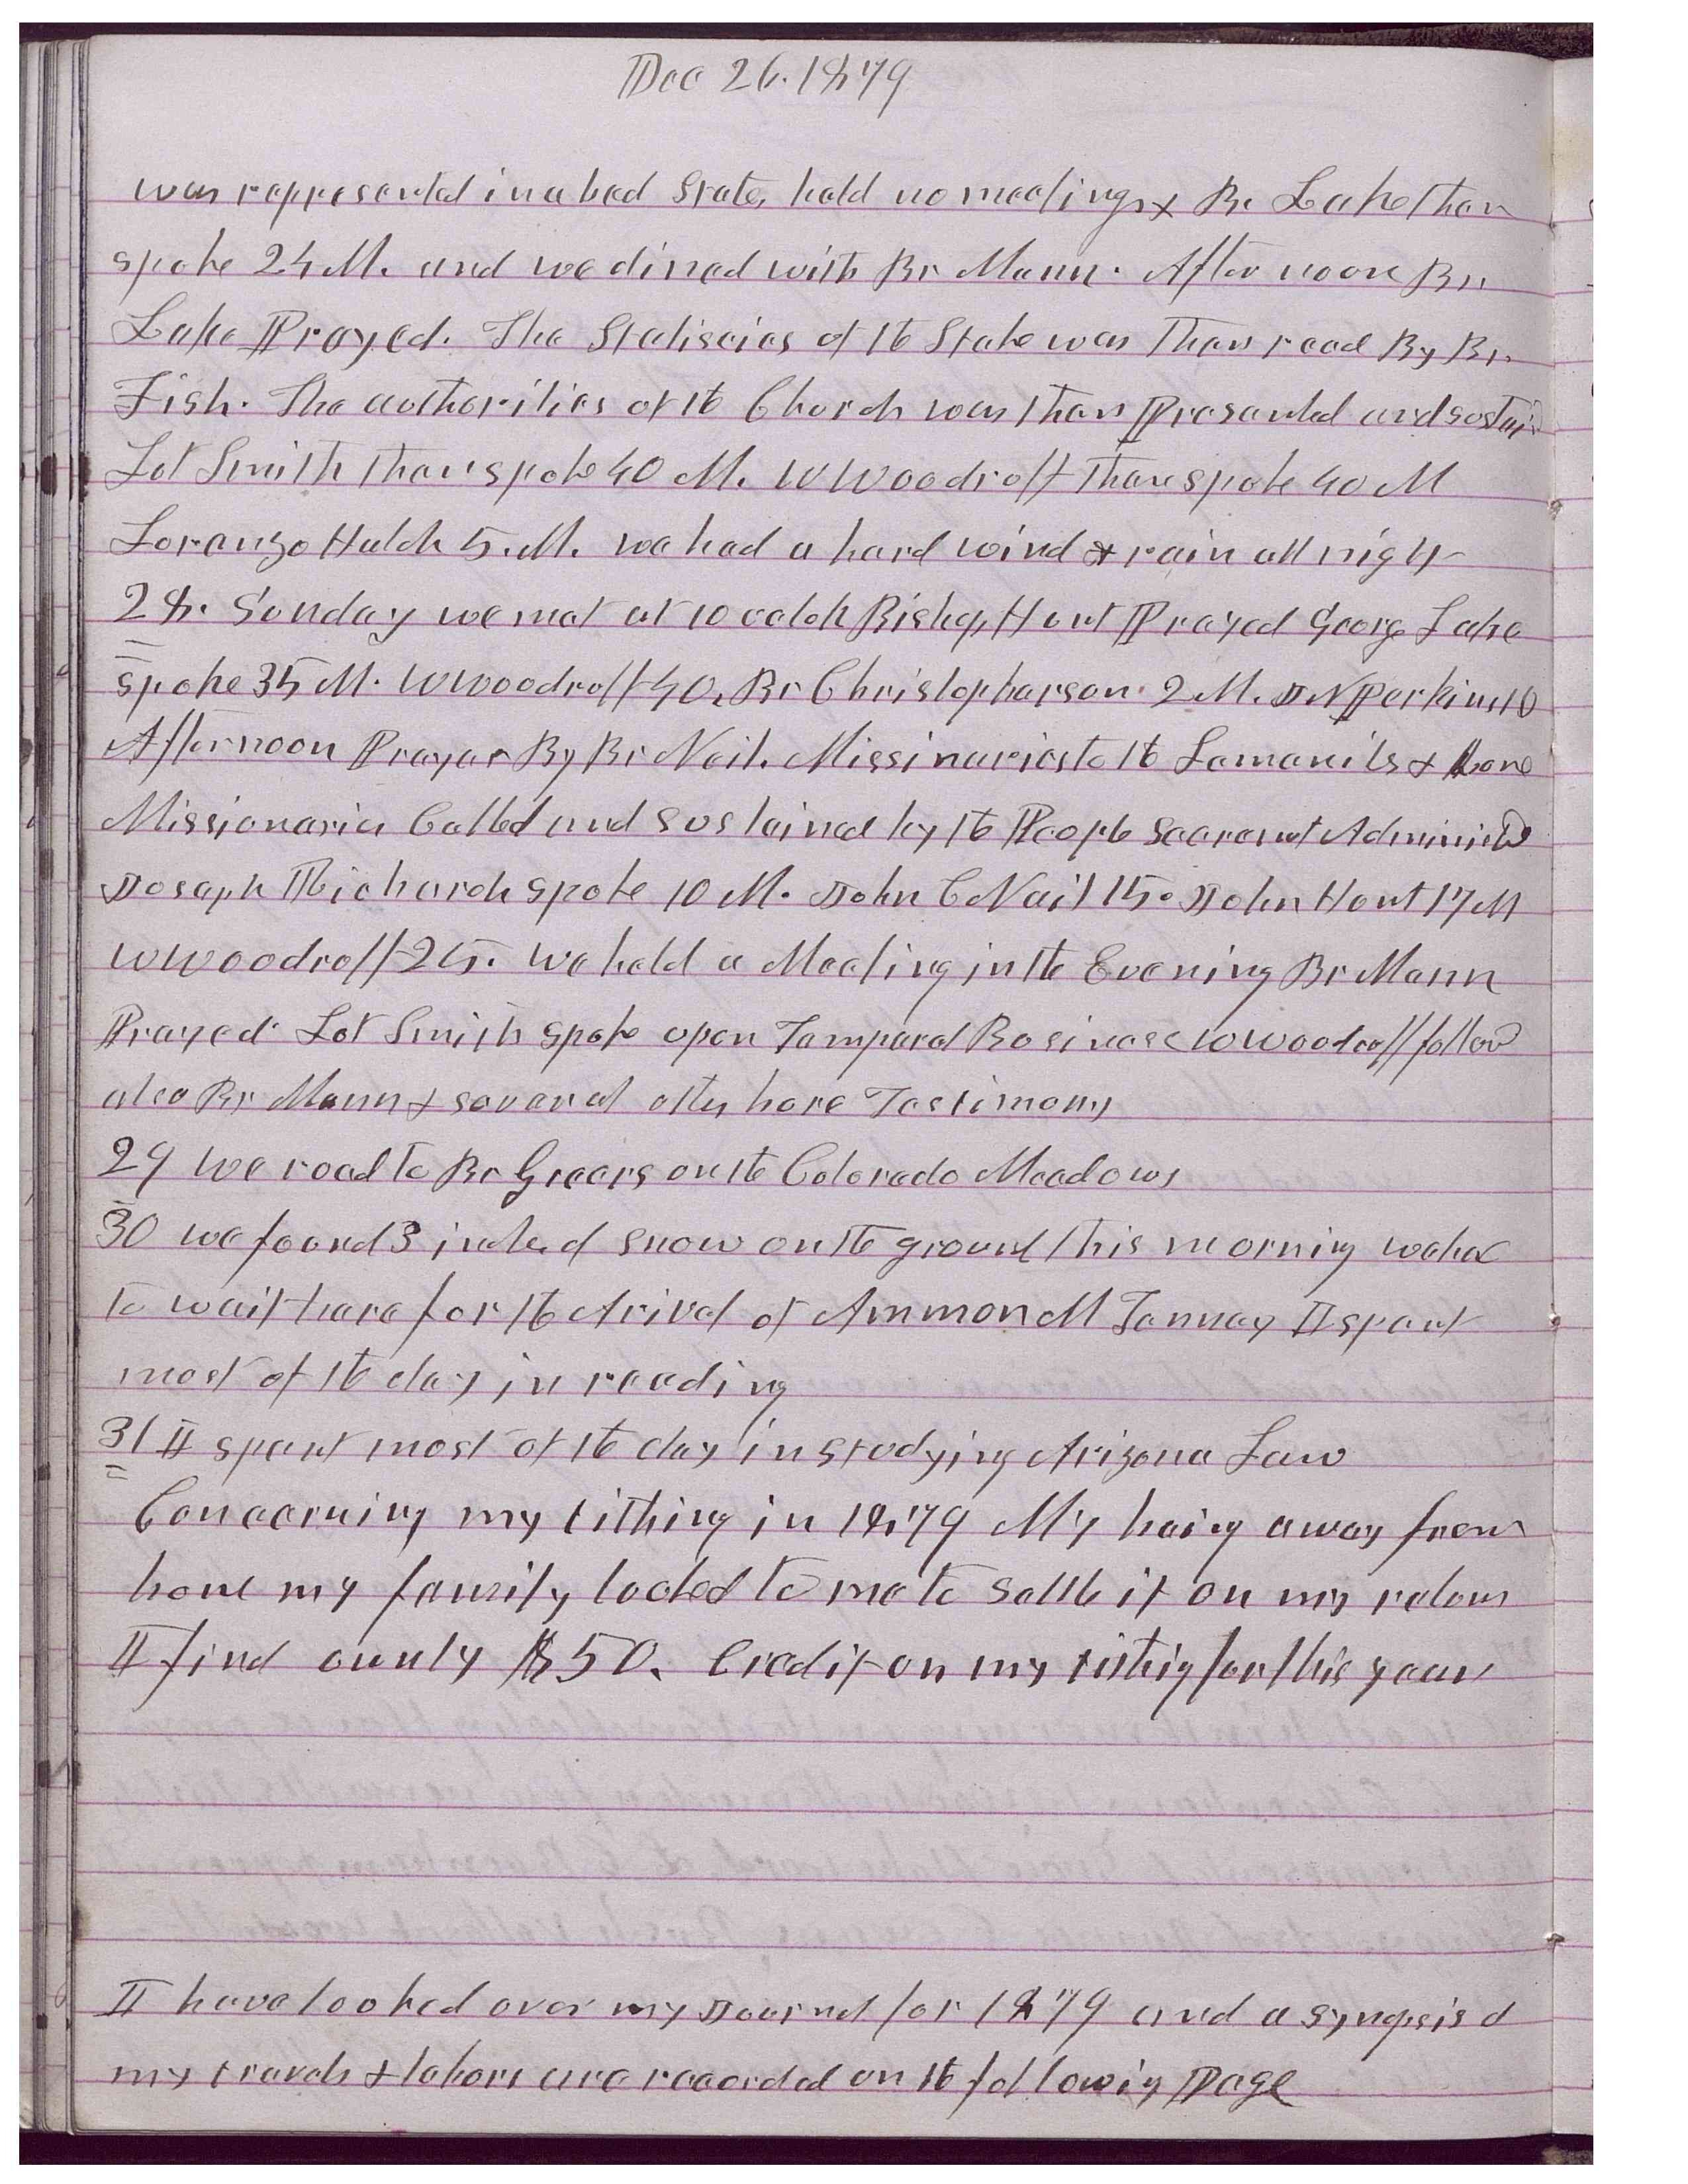 Dec 26. 1879
was represented in a bad State, held no meetings & Br Lake then
spoke 24 M. and we dined with Br Mann. After noon Br
Lake Prayed. The Statiscics of the Stake was then read By Br
Fish. The authorities of the Church was then Presented and sustaind
Lot Smith then spoke 40 M. W Woodruff then spoke 40 M
Lorenzo Hatch 5. M. we had a hard wind & rain all night
28. Sunday we met at 10 oclok Bishop Hunt Prayed George Lake
spoke 35 M. W Woodruff 40. Br Christopherson 2 M. J N Perkins 10
Afternoon Prayer By Br Neil. Missinaries to the Lamanits & Home
Missionaries Called and sustained by the People Sacrament Administed
Joseph Richards spoke 10 M. John C Nail 15. John Hunt 17 M
W Woodruff 25. We held a Meeting in the Evening Br Mann
Prayed Lot Smith spoke upon Temperal Business W Woodruff followed
also Br Mann & several others bore Testimony
29 We road to Br Greers on the Colorado Meadows
30 we found 3 inches of snow on the ground this morning we had
to wait here for the Arival of Ammon M Tenney I spent
most of the day in reading
31 I spent most of the day in studying Arizona Law
Concerning my tithing in 1879 My being away from
home my family looked to me to settle it on my return
I find ownly $50. Credit on my tithing for this year
I have looked over my Journal for 1879 and a synopsis of
my travels & labors are recorded on the following Page